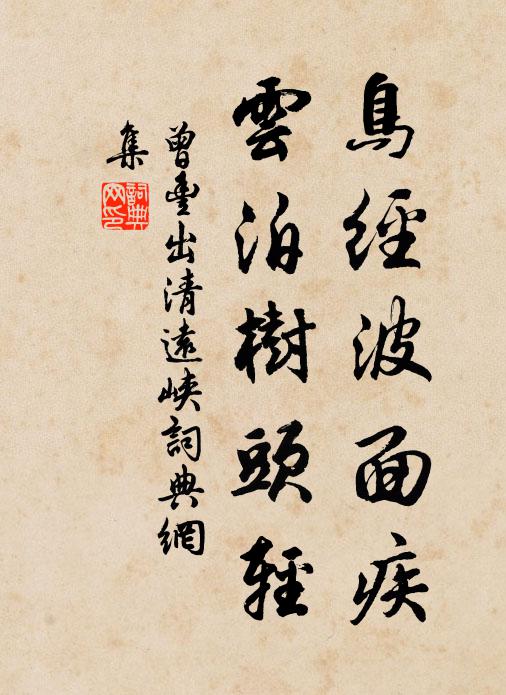 鳥經波面疾
雲泊樹頭輕
曾豐出清遠峽詞典網
集
詞典
网印